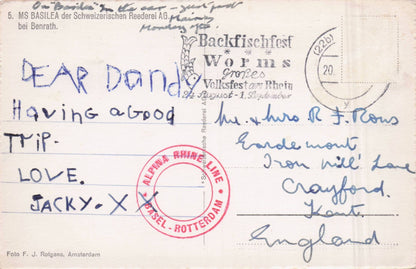 On "Basilea" in the car - just past
Mainz
Monday
5. MS BASILEA der Schweizerischen Reederei AG
bei Benrath.
DEAR Dandy
Having a Good
TRIP.
LOVE.
JACKY. X X
Foto F. J. Rotgans, Amsterdam
Schweizerische Reederei AG
ALPINA RHINE LINE
BASEL - ROTTERDAM
Backfischfest
Worms
Großes
Volksfest am Rhein
August - 1. September
(22b)
20.
Mr & Mrs R F
Iron Mill Lane
Crayford.
Kent.
England